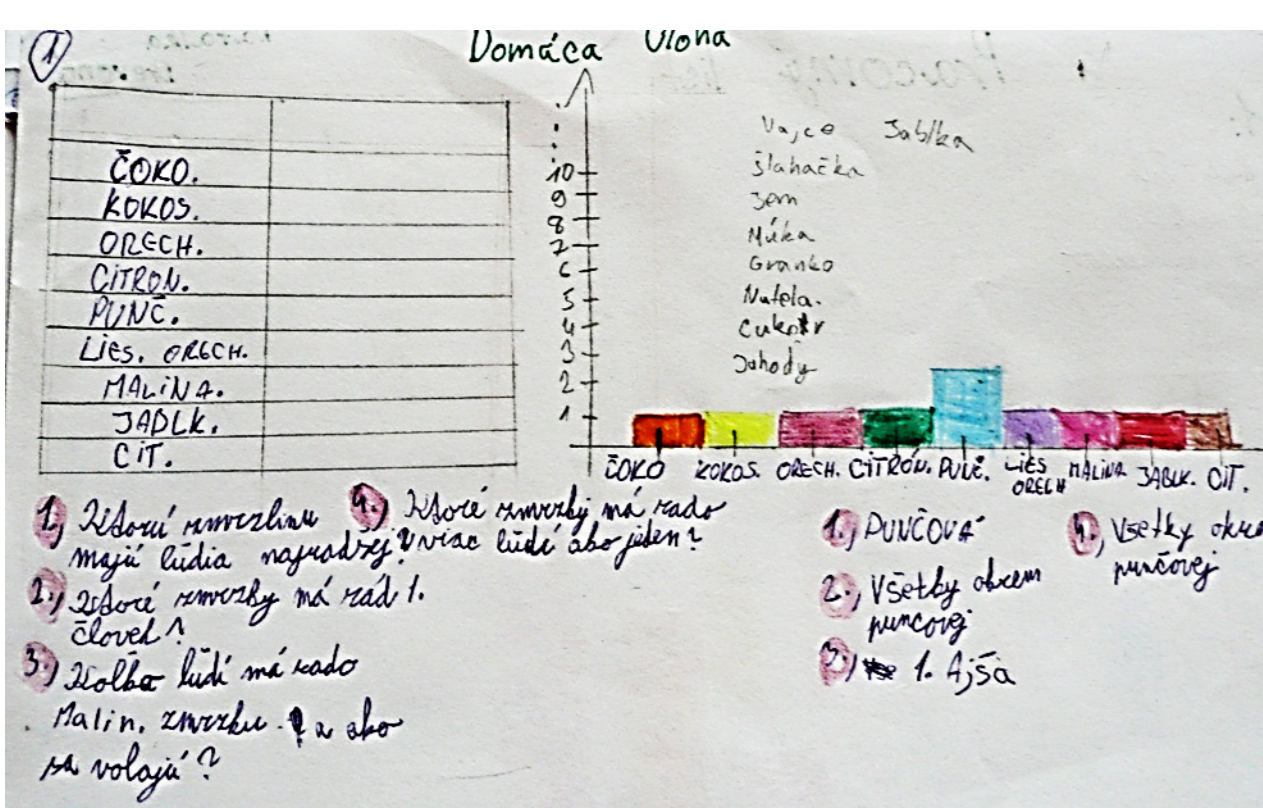 1
Domáca Úloha
ČOKO.
KOKOS.
ORECH.
CITRON.
PUNČ.
LIES. ORECH.
MALINA.
JABLK.
CIT.
10
9
8
7
6
5
4
3
2
1
Vajce Jablka
Šlahačka
Jem
Múka
Granko
Nutela.
Cukor
Jahody
ČOKO KOKOS. ORECH. CITRÓN. PUNČ. LIES ORECH MALINA JABLK. CIT.
1.) Ktorú zmrzlinu
majú ľúdia najradšej?
2.) Ktoré zmrzky má rád 1.
človek?
3.) Kolko ľudí má rado
Malin. zmrzku a ako
sa volajú?
4.) Ktoré zmrzky má rado
viac ľúdí ako jeden?
1.) PUNČOVÁ
2.) Všetky okrem
puncovej
3.) 1. Ajša
4.) Všetky okre
punčovej